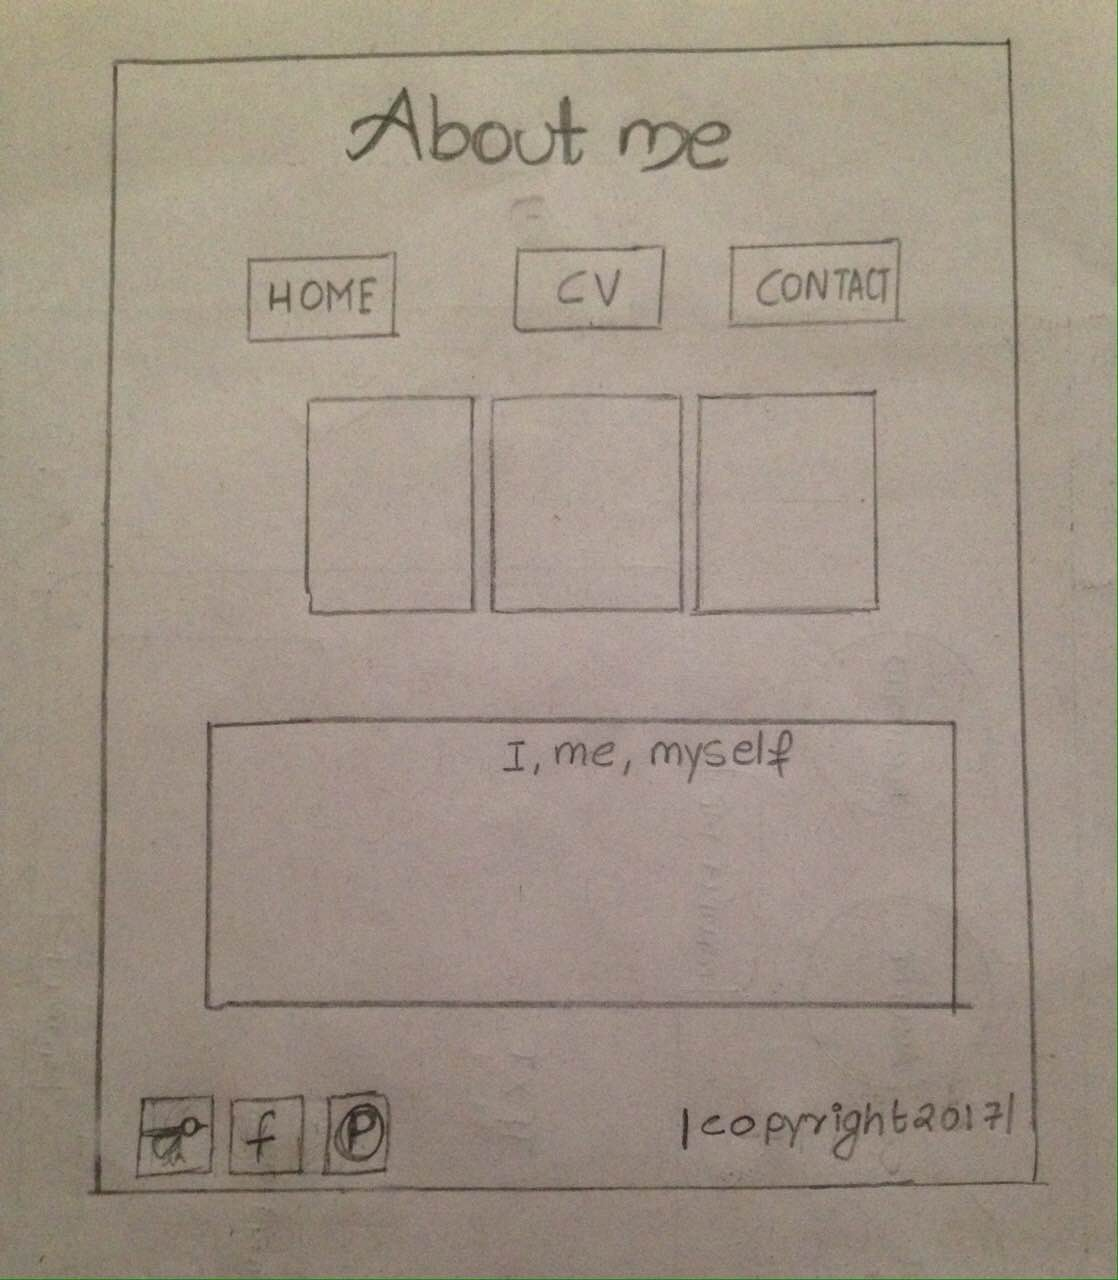 About me
HOME CV CONTACT
I, me, myself
f P |copyright2017|